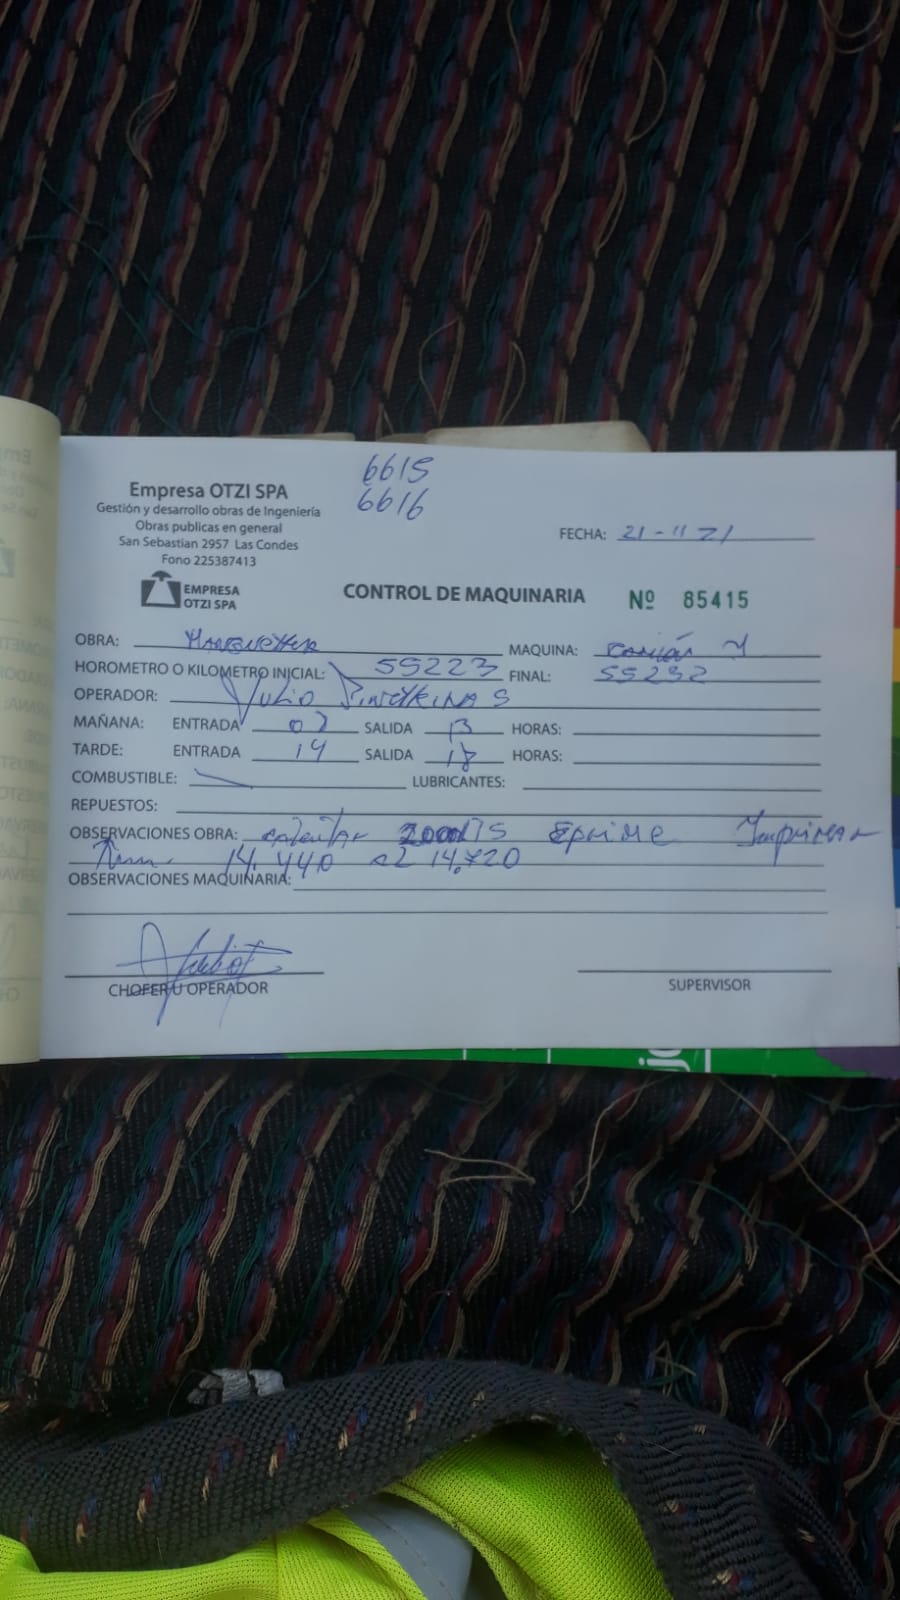 6615
6616
Empresa OTZI SPA
Gestión y desarrollo obras de Ingeniería
Obras publicas en general
San Sebastian 2957 Las Condes
Fono 225387413
FECHA: 21-11 21
EMPRESA
OTZI SPA
CONTROL DE MAQUINARIA Nº 85415
OBRA: MAQUINA: Camión
HOROMETRO O KILOMETRO INICIAL: 55223 FINAL: 55232
OPERADOR: Julio
MAÑANA: ENTRADA 07 SALIDA 13 HORAS:
TARDE: ENTRADA 14 SALIDA 18 HORAS:
COMBUSTIBLE: LUBRICANTES:
REPUESTOS:
OBSERVACIONES OBRA: calentar Eprime Imprimar
14.440 al 14.720
OBSERVACIONES MAQUINARIA:
CHOFER U OPERADOR
SUPERVISOR